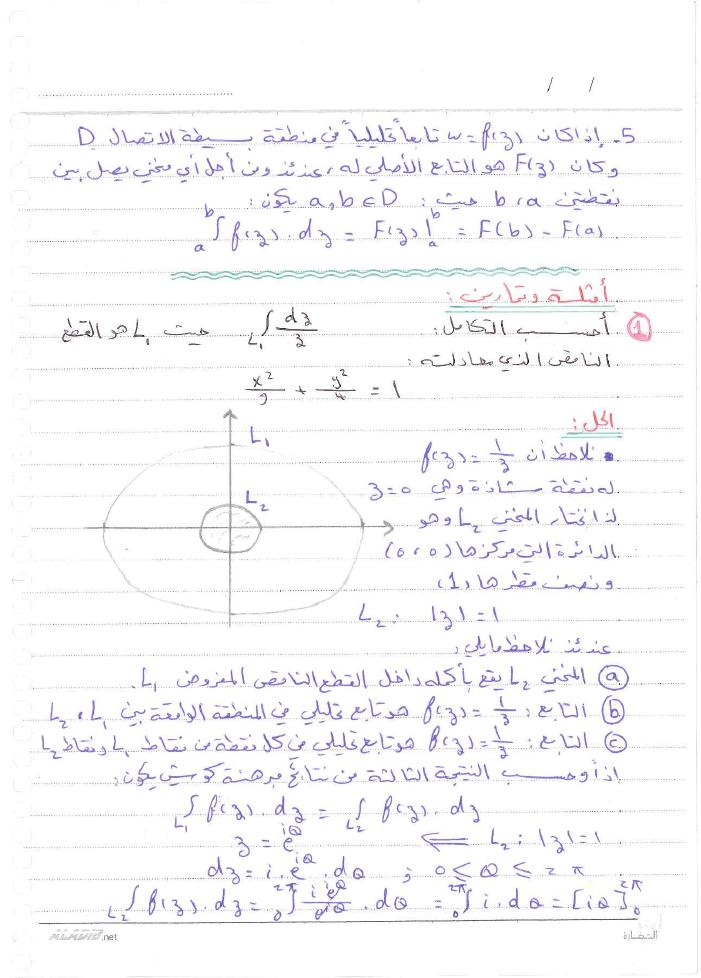 / /
5. إذا كان w = f(z) تابعاً تحليلياً في منطقة بسيطة الاتصال D
وكان F(z) هو التابع الأصلي له، عندئذ ومن أجل أي منحني يصل بين
نقطتين a ، b حيث : a, b ∈ D يكون :
ₐ∫ᵇ f(z) . dz = F(z)|ₐᵇ = F(b) - F(a)
أمثلة وتمارين :
① أحسب التكامل : L₁∫ dz/z حيث L₁ هو القطع
الناقص الذي معادلته :
x²/9 + y²/4 = 1
الحل :
L₁
• نلاحظ أن f(z) = 1/z
له نقطة شاذة وهي z = 0
L₂
لذا نختار المنحني L₂ وهو
الدائرة التي مركزها (0 ، 0)
ونصف قطرها (1)
L₂ : |z| = 1
عندئذ نلاحظ مايلي :
ⓐ المنحني L₂ يقع بأكمله داخل القطع الناقص المفروض L₁ .
ⓑ التابع : f(z) = 1/z هو تابع تحليلي في المنطقة الواقعة بين L₁ ، L₂
ⓒ التابع : f(z) = 1/z هو تابع تحليلي في كل نقطة من نقاط L₁ ونقاط L₂
إذاً وحسب النتيجة الثالثة من نتائج مبرهنة كوشي يكون :
L₁∫ f(z) . dz = L₂∫ f(z) . dz
z = e^{iθ} ⟸ L₂ : |z| = 1
dz = i . e^{iθ} . dθ ; 0 ≤ θ ≤ 2π
L₂∫ f(z) . dz = ₀∫^{2π} i e^{iθ}/e^{iθ} . dθ = ₀∫^{2π} i . dθ = [iθ]₀^{2π}
ALADIB.net